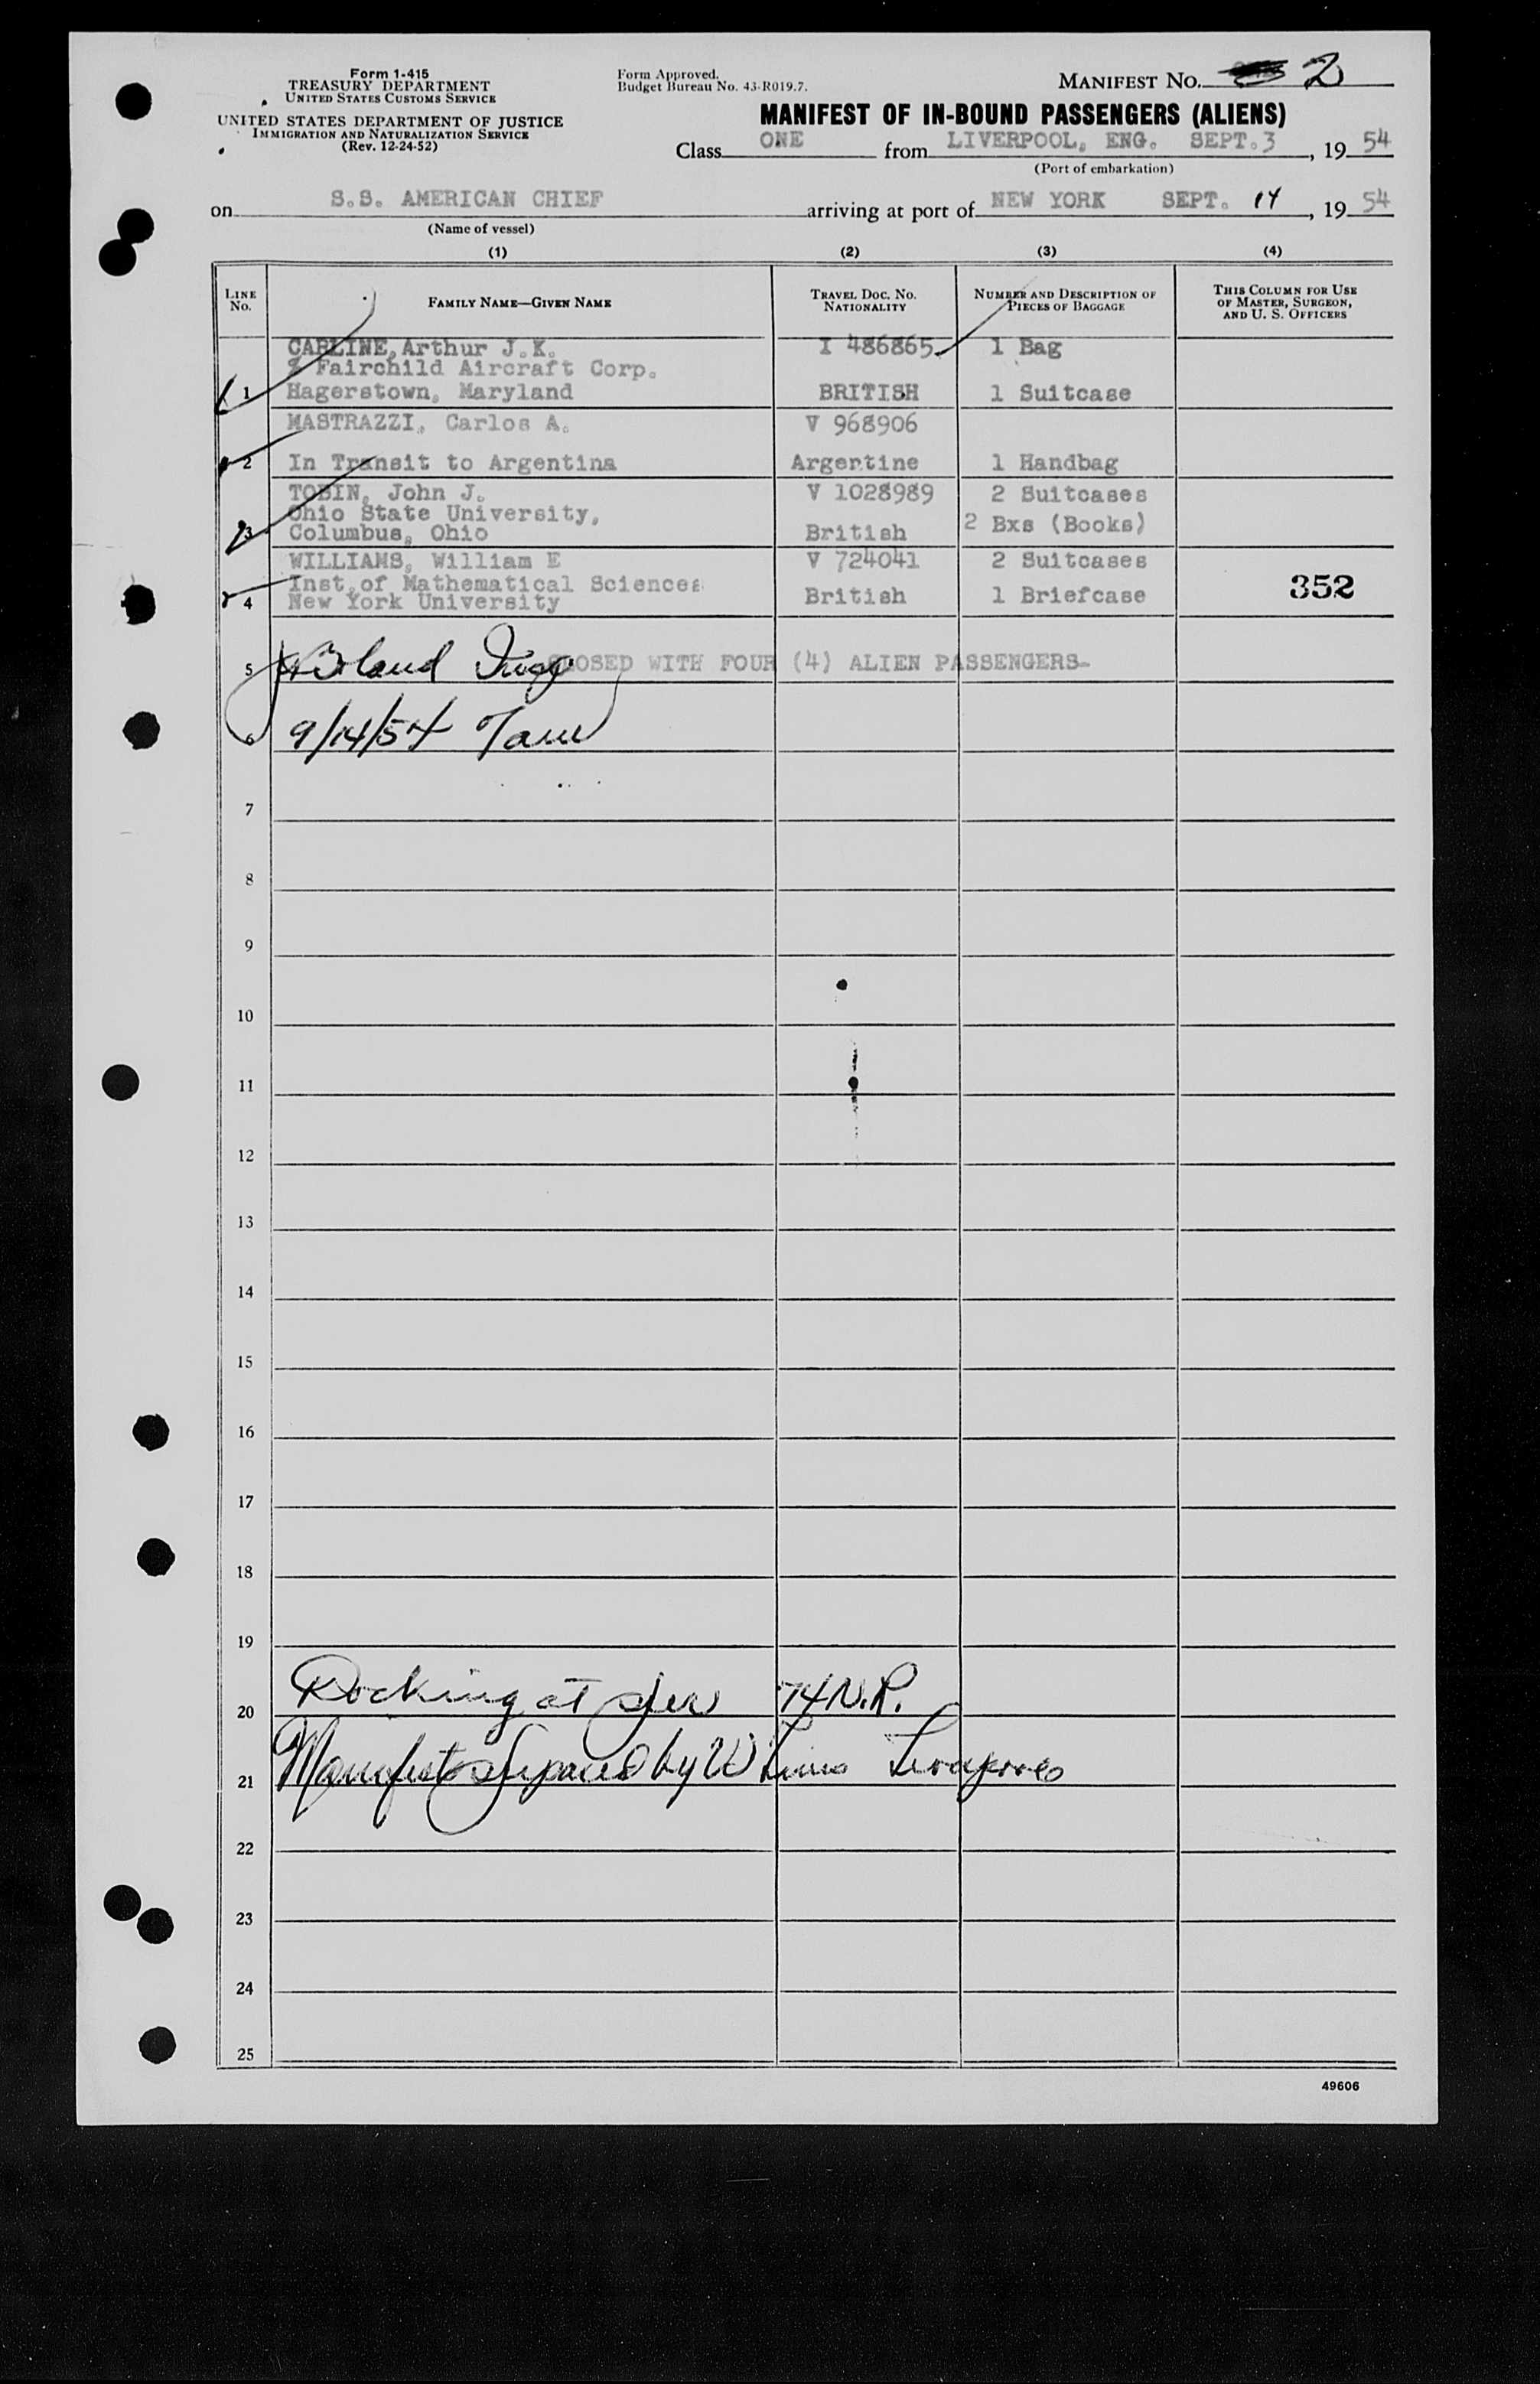 Form 1-415
TREASURY DEPARTMENT
UNITED STATES CUSTOMS SERVICE
UNITED STATES DEPARTMENT OF JUSTICE
IMMIGRATION AND NATURALIZATION SERVICE
(Rev. 12-24-52)
Form Approved.
Budget Bureau No. 43-R019.7.
MANIFEST No. 2
MANIFEST OF IN-BOUND PASSENGERS (ALIENS)
Class ONE from LIVERPOOL, ENG. SEPT.3, 19 54
(Port of embarkation)
on S.S. AMERICAN CHIEF arriving at port of NEW YORK SEPT. 14, 19 54
(Name of vessel)
(1) (2) (3) (4)
LINE No. FAMILY NAME—GIVEN NAME TRAVEL DOC. No. NATIONALITY NUMBER AND DESCRIPTION OF PIECES OF BAGGAGE THIS COLUMN FOR USE OF MASTER, SURGEON, AND U. S. OFFICERS
CARLINE, Arthur J.K. I 486865 1 Bag
% Fairchild Aircraft Corp.
1 Hagerstown, Maryland BRITISH 1 Suitcase
MASTRAZZI, Carlos A. V 968906
2 In Transit to Argentina Argentine 1 Handbag
TOBIN, John J. V 1028989 2 Suitcases
Ohio State University, 2 Bxs (Books)
3 Columbus, Ohio British
WILLIAMS, William E V 724041 2 Suitcases
Inst. of Mathematical Sciences 352
4 New York University British 1 Briefcase
5 CLOSED WITH FOUR (4) ALIEN PASSENGERS
6 9/14/54
7
8
9
10
11
12
13
14
15
16
17
18
19
20 Docking at pier 74 N.R.
21 Manifest prepared by U Lines Liverpool
22
23
24
25
49606